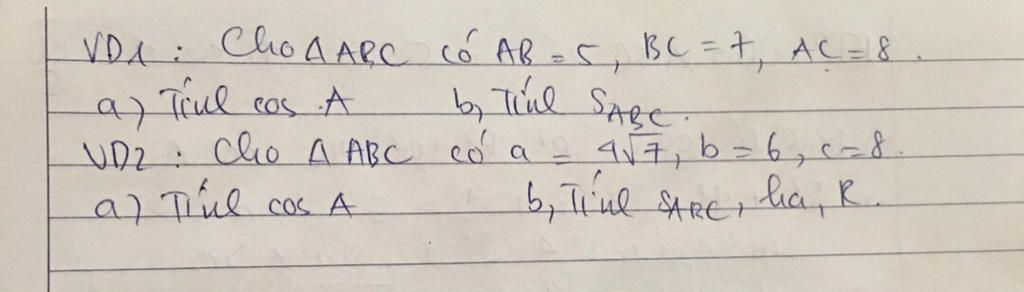 VD1 : Cho Δ ABC có AB = 5, BC = 7, AC = 8.
a) Tính cos A b, Tính SABC.
VD2 : Cho Δ ABC có a = 4√7, b = 6, c = 8.
a) Tính cos A b, Tính SABC, ha, R.